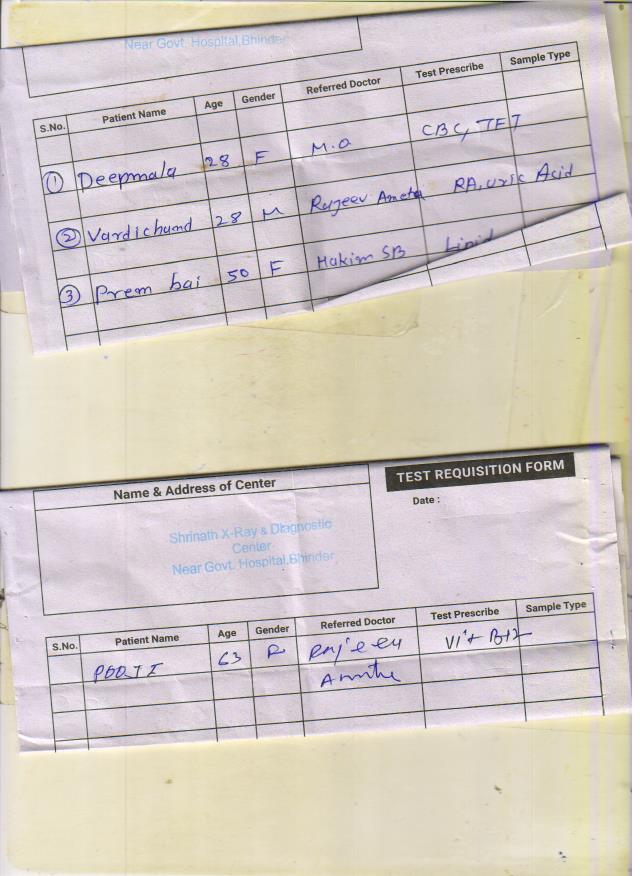 Near Govt. Hospital,Bhinder
S.No. Patient Name Age Gender Referred Doctor Test Prescribe Sample Type
① Deepmala 28 F M.O CBC, TFT
② Vardichand 28 M Rajeev Ameta RA, Uric Acid
③ Prem bai 50 F Hakim SB Lipid
Name & Address of Center
TEST REQUISITION FORM
Date :
Shrinath X-Ray & Diagnostic
Center
Near Govt. Hospital,Bhinder
S.No. Patient Name Age Gender Referred Doctor Test Prescribe Sample Type
63 Rajeev Vit B12